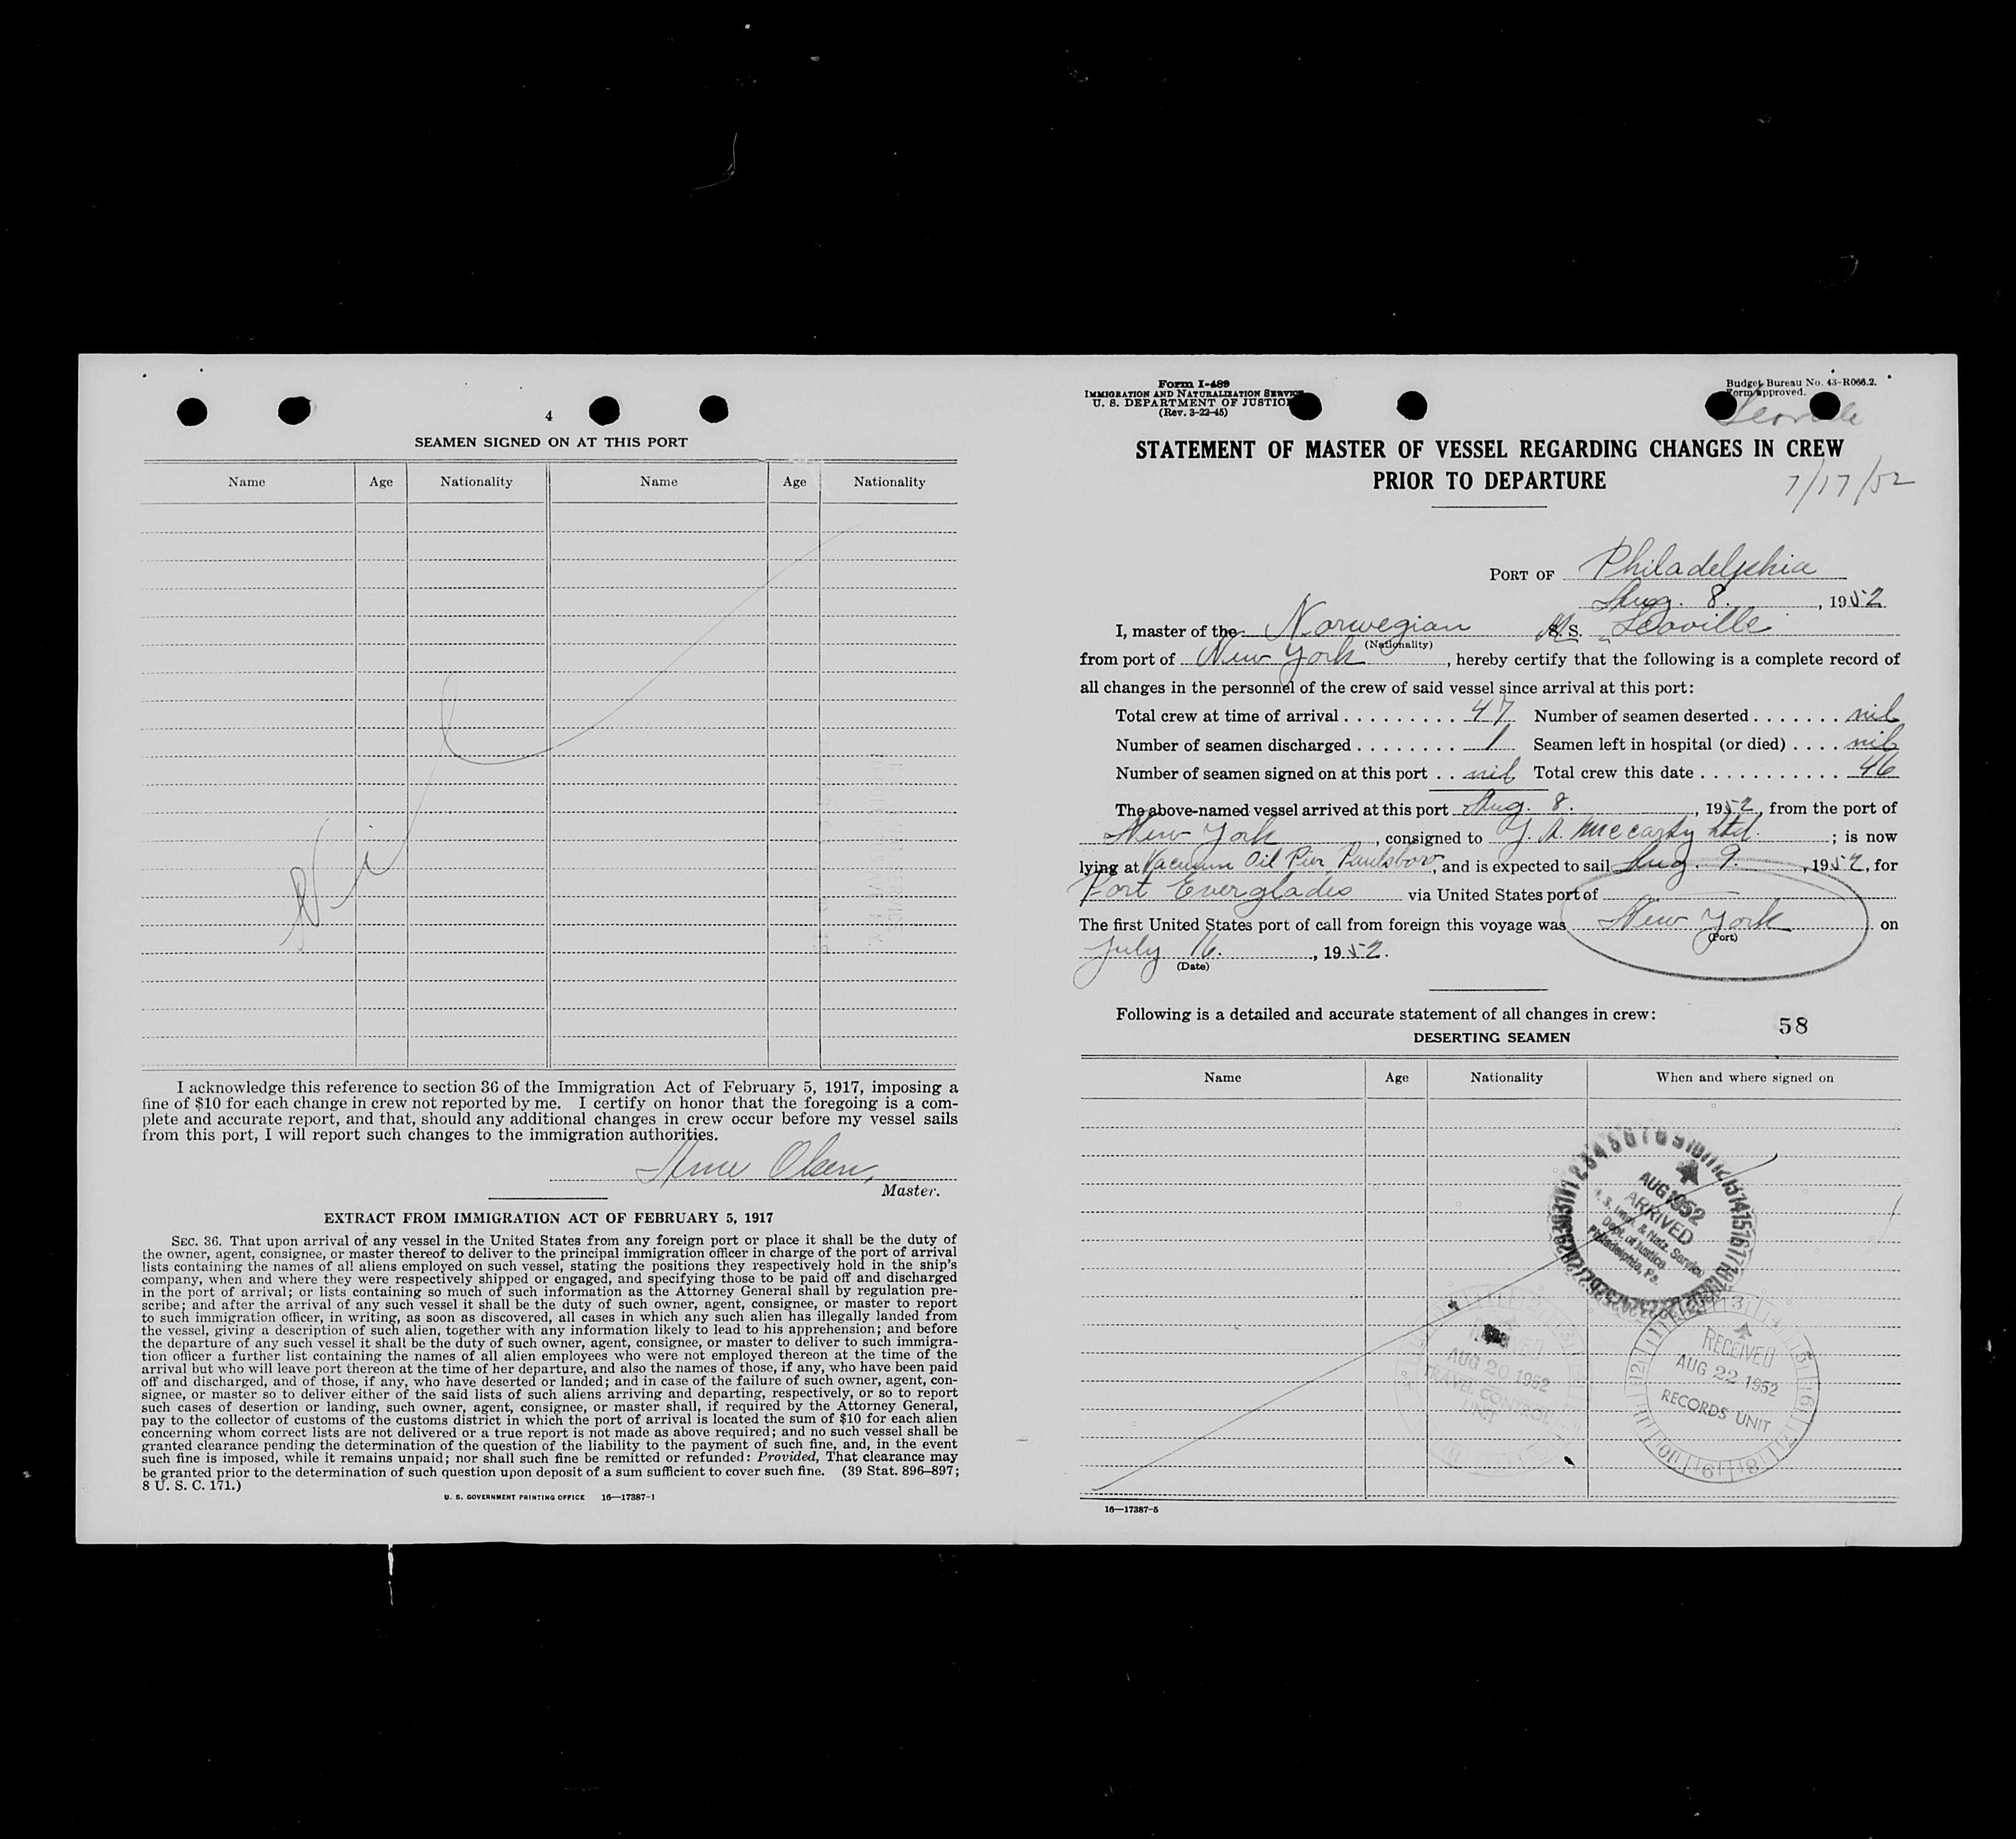 4
SEAMEN SIGNED ON AT THIS PORT
Name Age Nationality Name Age Nationality
Nil
I acknowledge this reference to section 36 of the Immigration Act of February 5, 1917, imposing a
fine of $10 for each change in crew not reported by me. I certify on honor that the foregoing is a com-
plete and accurate report, and that, should any additional changes in crew occur before my vessel sails
from this port, I will report such changes to the immigration authorities.
Arne Olsen,
Master.
EXTRACT FROM IMMIGRATION ACT OF FEBRUARY 5, 1917
SEC. 36. That upon arrival of any vessel in the United States from any foreign port or place it shall be the duty of
the owner, agent, consignee, or master thereof to deliver to the principal immigration officer in charge of the port of arrival
lists containing the names of all aliens employed on such vessel, stating the positions they respectively hold in the ship's
company, when and where they were respectively shipped or engaged, and specifying those to be paid off and discharged
in the port of arrival; or lists containing so much of such information as the Attorney General shall by regulation pre-
scribe; and after the arrival of any such vessel it shall be the duty of such owner, agent, consignee, or master to report
to such immigration officer, in writing, as soon as discovered, all cases in which any such alien has illegally landed from
the vessel, giving a description of such alien, together with any information likely to lead to his apprehension; and before
the departure of any such vessel it shall be the duty of such owner, agent, consignee, or master to deliver to such immigra-
tion officer a further list containing the names of all alien employees who were not employed thereon at the time of the
arrival but who will leave port thereon at the time of her departure, and also the names of those, if any, who have been paid
off and discharged, and of those, if any, who have deserted or landed; and in case of the failure of such owner, agent, con-
signee, or master so to deliver either of the said lists of such aliens arriving and departing, respectively, or so to report
such cases of desertion or landing, such owner, agent, consignee, or master shall, if required by the Attorney General,
pay to the collector of customs of the customs district in which the port of arrival is located the sum of $10 for each alien
concerning whom correct lists are not delivered or a true report is not made as above required; and no such vessel shall be
granted clearance pending the determination of the question of the liability to the payment of such fine, and, in the event
such fine is imposed, while it remains unpaid; nor shall such fine be remitted or refunded: Provided, That clearance may
be granted prior to the determination of such question upon deposit of a sum sufficient to cover such fine. (39 Stat. 896–897;
8 U. S. C. 171.)
U. S. GOVERNMENT PRINTING OFFICE 16—17387-1
Form I-489
IMMIGRATION AND NATURALIZATION SERVICE
U. S. DEPARTMENT OF JUSTICE
(Rev. 3-22-45)
Budget Bureau No. 43-R066.2.
Form approved.
STATEMENT OF MASTER OF VESSEL REGARDING CHANGES IN CREW
PRIOR TO DEPARTURE
7/17/52
PORT OF Philadelphia
Aug. 8., 1952
I, master of the Norwegian S. S. Leoville
(Nationality)
from port of New York, hereby certify that the following is a complete record of
all changes in the personnel of the crew of said vessel since arrival at this port:
Total crew at time of arrival . . . . . . . . . 47 Number of seamen deserted . . . . . . . nil
Number of seamen discharged . . . . . . . . 1 Seamen left in hospital (or died) . . . . nil
Number of seamen signed on at this port . . nil Total crew this date . . . . . . . . . . . 46
The above-named vessel arrived at this port Aug. 8., 1952, from the port of
New York, consigned to J. A. McCarthy Ltd.; is now
lying at Vacuum Oil Pier Paulsboro, and is expected to sail Aug. 9., 1952, for
Port Everglades via United States port of
The first United States port of call from foreign this voyage was New York on
(Port)
July 16., 1952.
(Date)
Following is a detailed and accurate statement of all changes in crew:
58
DESERTING SEAMEN
Name Age Nationality When and where signed on
AUG 1952
ARRIVED
U. S. Imm. & Natz. Service
Dept. of Justice
Philadelphia, Pa.
RECEIVED
AUG 20 1952
TRAVEL CONTROL
UNIT
RECEIVED
AUG 22 1952
RECORDS UNIT
16—17387-5